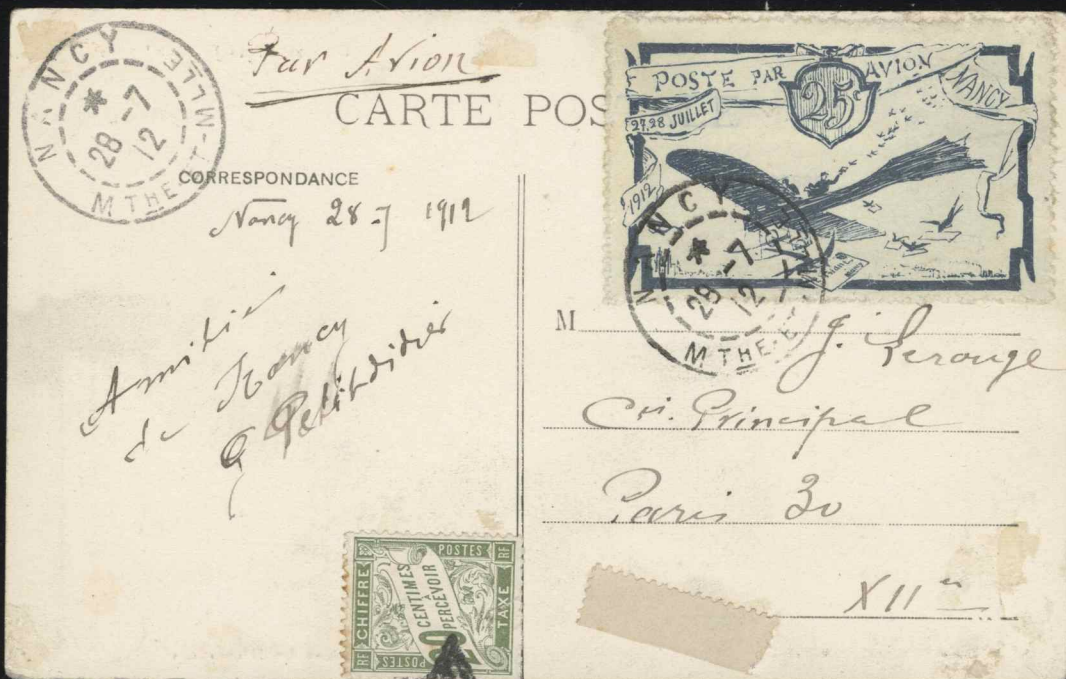 NANCY
28 -7
12
MTHE-ET-MLLE
Par Avion
CARTE POS
CORRESPONDANCE
Nancy 28-7 1912
Amitiés
de Nancy
G Petitdidier
POSTE PAR AVION
NANCY
25
27,28 JUILLET
1912
NANCY
28 -7
12
MTHE-ET-MLLE
M J. Lerouge
Principal
Paris 30
XIIe
CHIFFRE
TAXE
POSTES
POSTES
RF
RF
RF
20
CENTIMES
À
PERCEVOIR